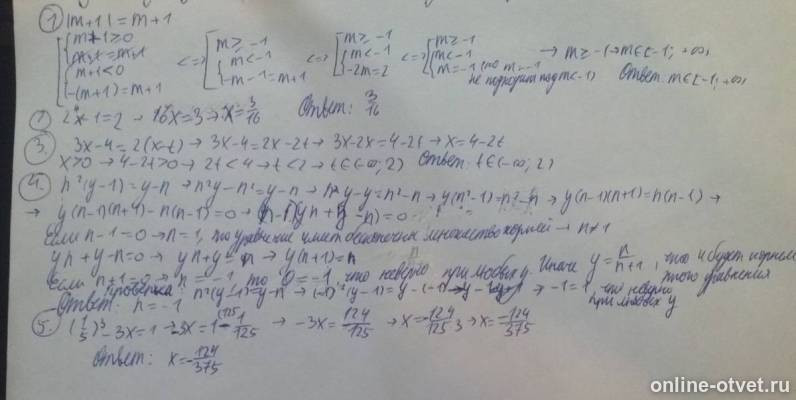 ① |m+1|=m+1
m+1≥0
m+1=m+1
m+1<0
-(m+1)=m+1
<=> m≥-1
m<-1
-m-1=m+1
<=> m≥-1
m<-1
-2m=2
<=> m≥-1
m<-1
m=-1 (но m=-1 не подходит под m<-1)
→ m≥-1 → m∈[-1; +∞)
Ответ: m∈[-1; +∞)
16x=3 → x=3/16 Ответ: 3/16
3. 3x-4=2(x-t) → 3x-4=2x-2t → 3x-2x=4-2t → x=4-2t
x>0 → 4-2t>0 → 2t<4 → t<2 → t∈(-∞; 2) Ответ: t∈(-∞; 2)
4. n²(y-1)=y-n → n²y-n²=y-n → n²y-y=n²-n → y(n²-1)=n²-n → y(n-1)(n+1)=n(n-1) →
→ y(n-1)(n+1)-n(n-1)=0 → (n-1)(yn+y-n)=0
Если n-1=0 → n=1, то уравнение имеет бесконечн множество корней → n≠1
yn+y-n=0 → yn+y=n → y(n+1)=n
Если n+1=0 → n=-1, то 0=-1, что неверно при любых y. Иначе y=n/n+1, что и будет корнем этого уравнения
проверка n²(y-1)=y-n → (-1)²(y-1)=y-(-1) → → -1=1, что неверно при любых y
Ответ: n=-1
5. (1/5)³-3x=1 → -3x=1-1/125 → -3x=124/125 → x=-124/125·3 → x=-124/375
Ответ: x=-124/375
online-otvet.ru